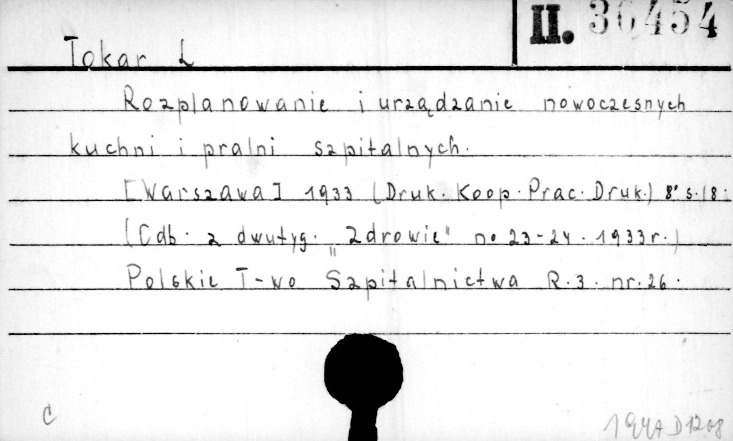 II. 30454
Tokar L
Rozplanowanie i urządzanie nowoczesnych
kuchni i pralni szpitalnych.
[Warszawa] 1933 (Druk. Koop. Prac. Druk.) 8° s. 18.
(Odb. z dwutyg. „Zdrowie" no 23-24. 1933 r.)
Polskie T-wo Szpitalnictwa R. 3. nr. 26.
C